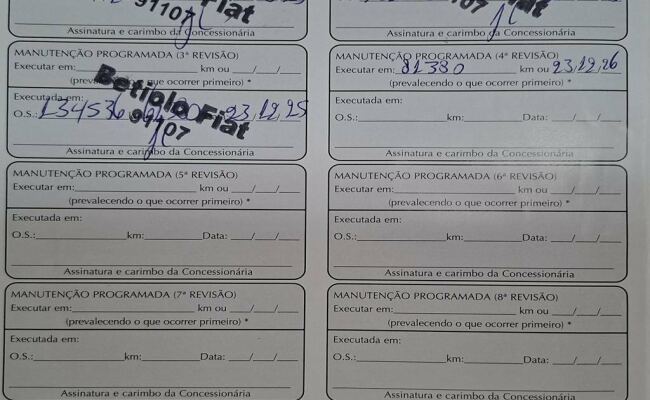 Fiat
91107
107
Assinatura e carimbo da Concessionária
Assinatura e carimbo da Concessionária
MANUTENÇÃO PROGRAMADA (3ª REVISÃO)
Executar em: km ou / /
(prevalecendo o que ocorrer primeiro) *
Executada em:
O.S.: 134536 23,12,25
Betiolo Fiat
91107
Assinatura e carimbo da Concessionária
MANUTENÇÃO PROGRAMADA (4ª REVISÃO)
Executar em: 81380 km ou 23,12,26
(prevalecendo o que ocorrer primeiro) *
Executada em:
O.S.: km: Data: / /
Assinatura e carimbo da Concessionária
MANUTENÇÃO PROGRAMADA (5ª REVISÃO)
Executar em: km ou / /
(prevalecendo o que ocorrer primeiro) *
Executada em:
O.S.: km: Data: / /
Assinatura e carimbo da Concessionária
MANUTENÇÃO PROGRAMADA (6ª REVISÃO)
Executar em: km ou / /
(prevalecendo o que ocorrer primeiro) *
Executada em:
O.S.: km: Data: / /
Assinatura e carimbo da Concessionária
MANUTENÇÃO PROGRAMADA (7ª REVISÃO)
Executar em: km ou / /
(prevalecendo o que ocorrer primeiro) *
Executada em:
O.S.: km: Data: / /
Assinatura e carimbo da Concessionária
MANUTENÇÃO PROGRAMADA (8ª REVISÃO)
Executar em: km ou / /
(prevalecendo o que ocorrer primeiro) *
Executada em:
O.S.: km: Data: / /
Assinatura e carimbo da Concessionária